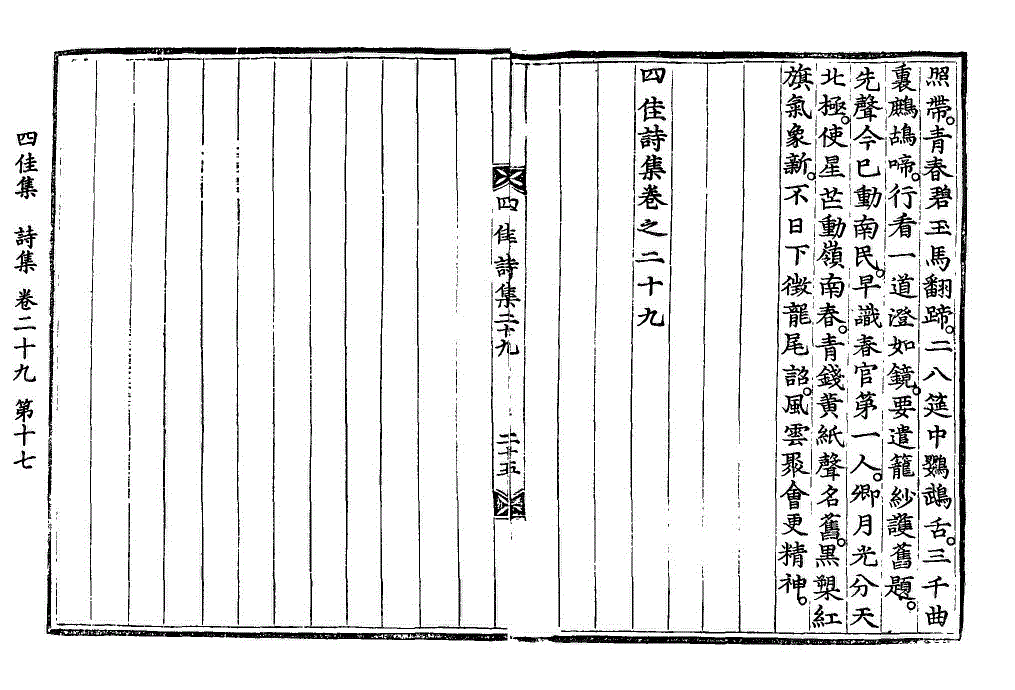 照帶。青春碧玉馬翻蹄。二八筵中鸚鵡舌。三千曲
裏鷓鴣啼。行看一道澄如鏡。要遣籠紗護舊題。
先聲今已動南民。早識春官第一人。卿月光分天
北極。使星芒動嶺南春。青錢黄紙聲名舊。黑槊紅
旗氣象新。不日下徴龍尾詔。風雲聚會更精神。
四佳詩集卷之二十九
四佳詩集二十九
二十五
四佳集 詩集 卷二十九 第十七